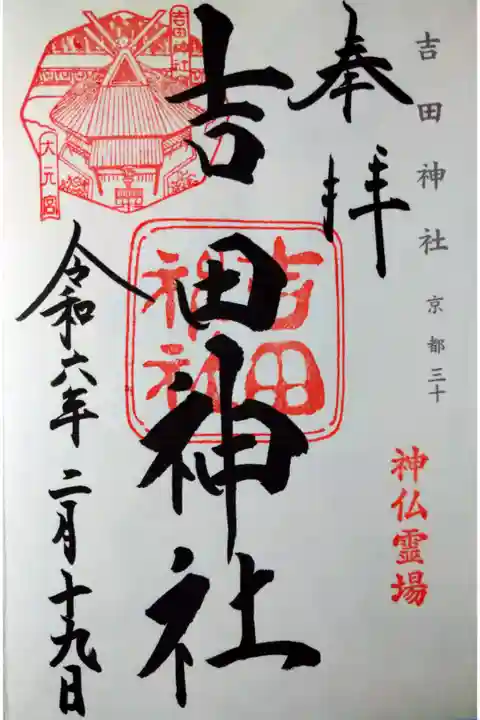 吉田神社 京都三十
神仏霊場
奉拝
吉田神社
吉田
神社
吉田神社
大元宮
令和六年二月十九日